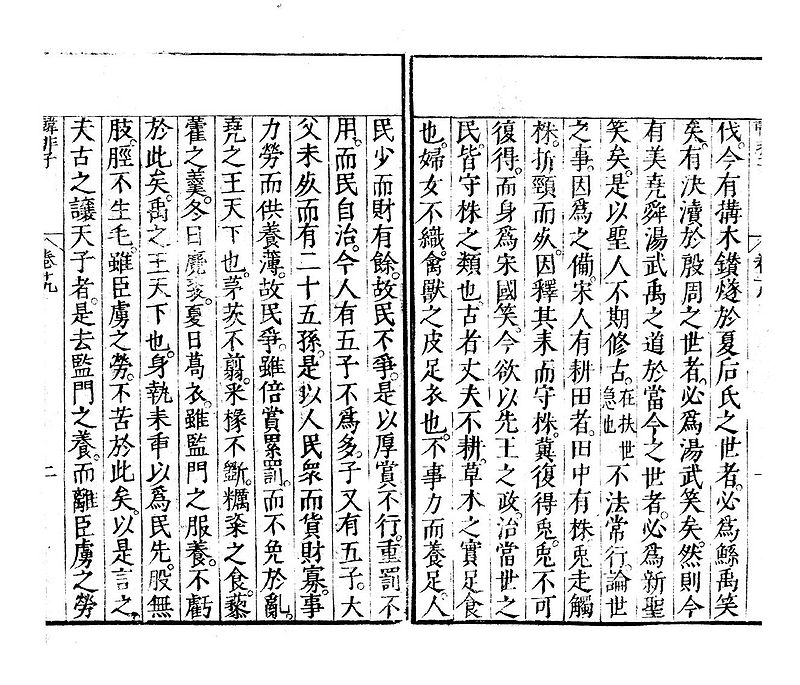 伐今有搆木鑽燧於夏后氏之世者。必爲鯀禹笑
矣。有決瀆於殷周之世者。必爲湯武笑矣。然則今
有美堯舜湯武禹之道於當今之世者。必爲新聖
笑矣。是以聖人不期修古。在扶世急也不法常行。論世
之事。因爲之備。宋人有耕田者。田中有株兎走觸
株。折頸而死。因釋其耒而守株。冀復得兎。兎不可
復得。而身爲宋國笑。今欲以先王之政。治當世之
民。皆守株之類也。古者丈夫不耕。草木之實足食
也。婦女不織。禽獸之皮足衣也。不事力而養足。人
民少而財有餘。故民不爭。是以厚賞不行。重罰不
用。而民自治。今人有五子不爲多。子又有五子。大
父未死而有二十五孫。是以人民衆而貨財寡。事
力勞而供養薄。故民爭。雖倍賞累罰。而不免於亂。
堯之王天下也。茅茨不翦。采椽不斲。糲粢之食。藜
藿之羹。冬日麑裘。夏日葛衣。雖監門之服養。不虧
於此矣。禹之王天下也。身執耒臿以爲民先。股無
肢。脛不生毛。雖臣虜之勞。不苦於此矣。以是言之。
夫古之讓天子者。是去監門之養。而離臣虜之勞
韓非子 卷十九 二